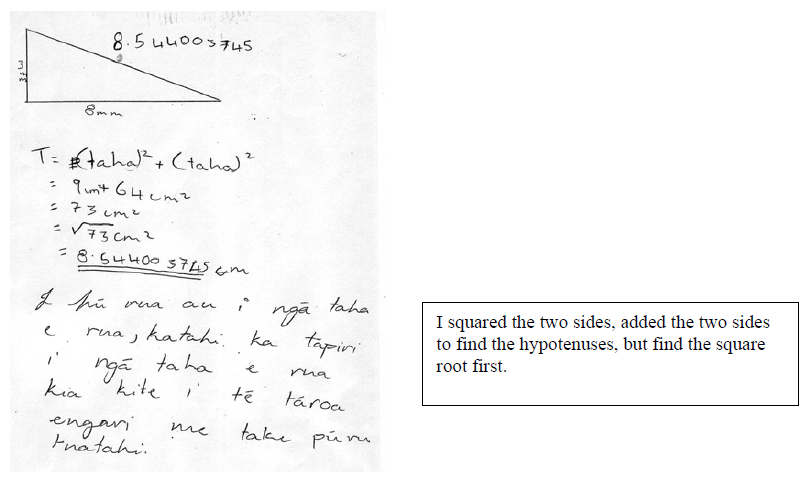 8.544003745
3
8mm
T = (taha)² + (taha)²
= 9cm + 64cm²
= 73cm²
= √73cm²
= 8.544003745cm
I pū rua au i ngā taha
e rua, katahi ka tāpiri
i ngā taha e rua
kia kite i te tāroa
engari me take pūrua
tuatahi.
I squared the two sides, added the two sides
to find the hypotenuses, but find the square
root first.